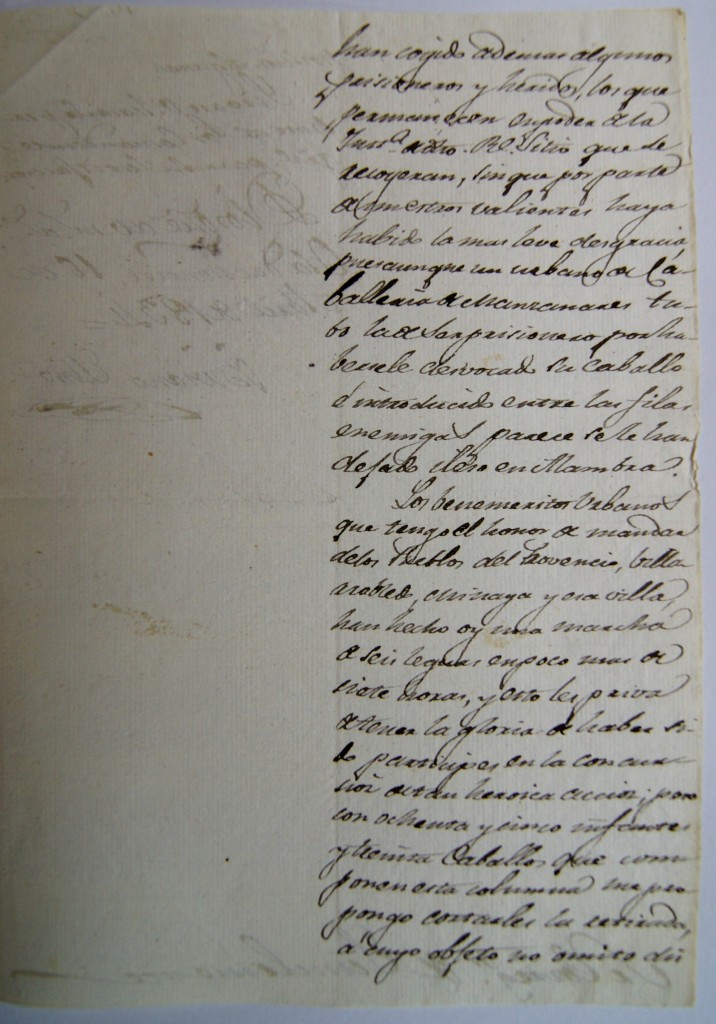 han cogido ademas algunos
prisioneros y heridos, los que
permanecen en poder de la
Just.ª de dho. Rl. Sitio que se
recogeran, sin que por parte
de nuestros valientes haya
habido la mas leve desgracia,
pues aunque un urbano de Ca-
balleria de Manzanares tu-
bo la de ser prisionero por ha-
bersele desvocado su caballo
é introducido entre las filas
enemigas parece se le han
dejado ileso en Alambra.
Los benemeritos Urbanos
que tengo el honor de mandar
de los Pueblos del Provencio, Villa-
robledo, Minaya y esa villa,
han hecho oy una marcha
de seis leguas en poco mas de
siete horas, y esto les priva
de tener la gloria de haber si-
do participes en la concur-
sion de tan heroica accion; pero
con ochenta y cinco infantes
y treinta Caballos que com-
ponen esta columna me pro-
pongo cortarles la retirada,
á cuyo objeto no omito dili-